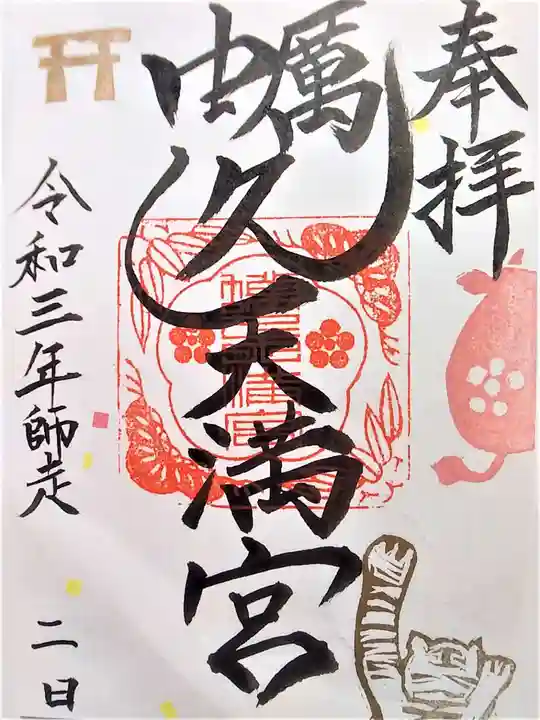 奉拝
蛎久天満宮
令和三年師走 二日